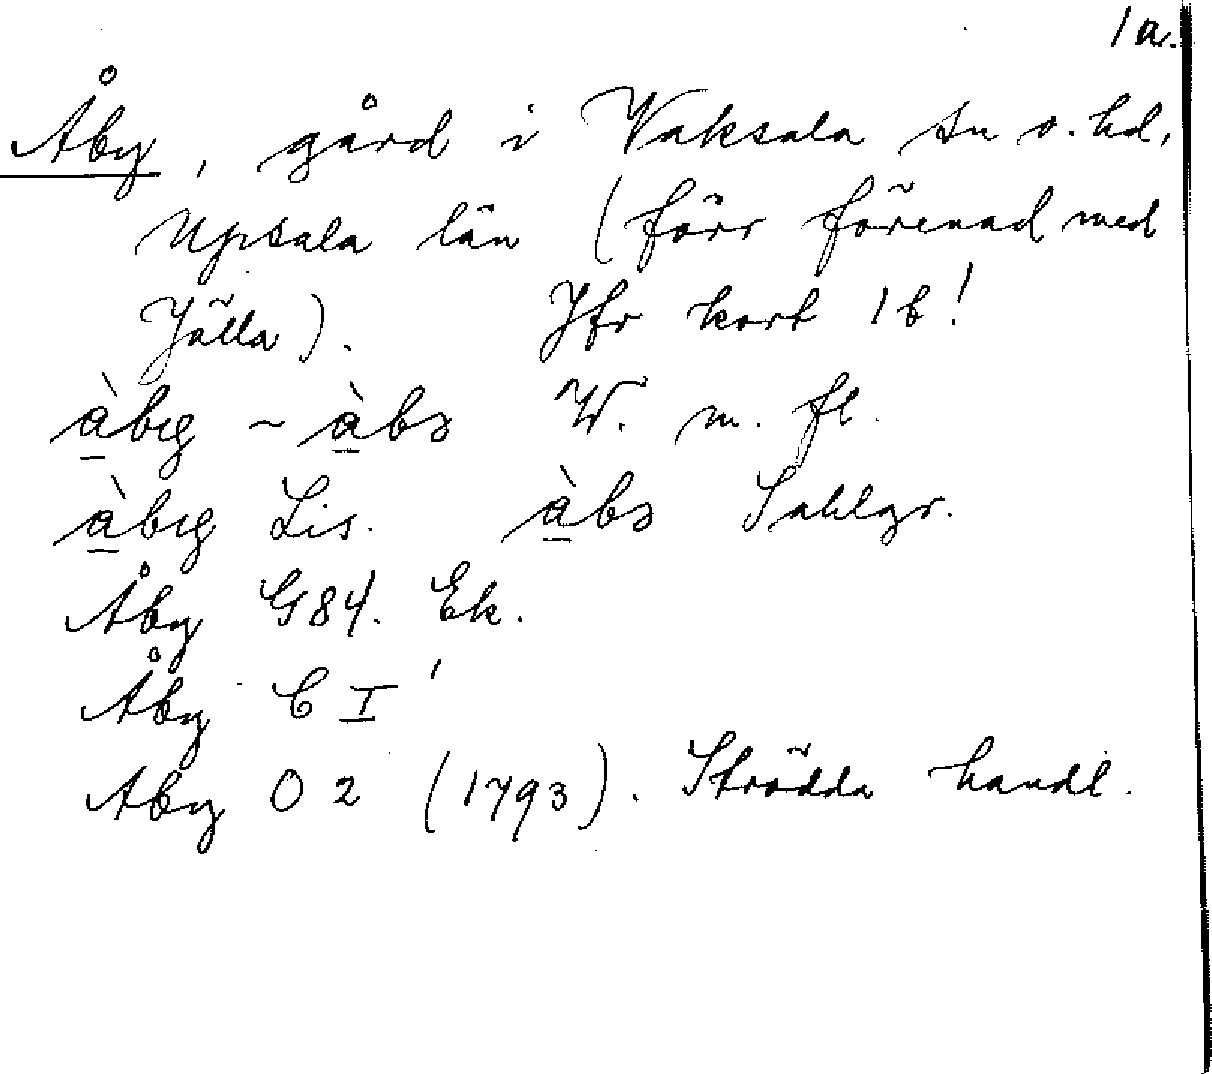 1a.
Åby, gård i Vaksala sn o. hd,
Upsala län (förr förenad med
Jälla). Jfr kort 1b!
å̱̀by ~ à̱bs W. m. fl.
à̱by Lis. à̱bs Sahlgr.
Åby G84. Ek.
Åby C I
Aby O 2 (1793). Strödda handl.